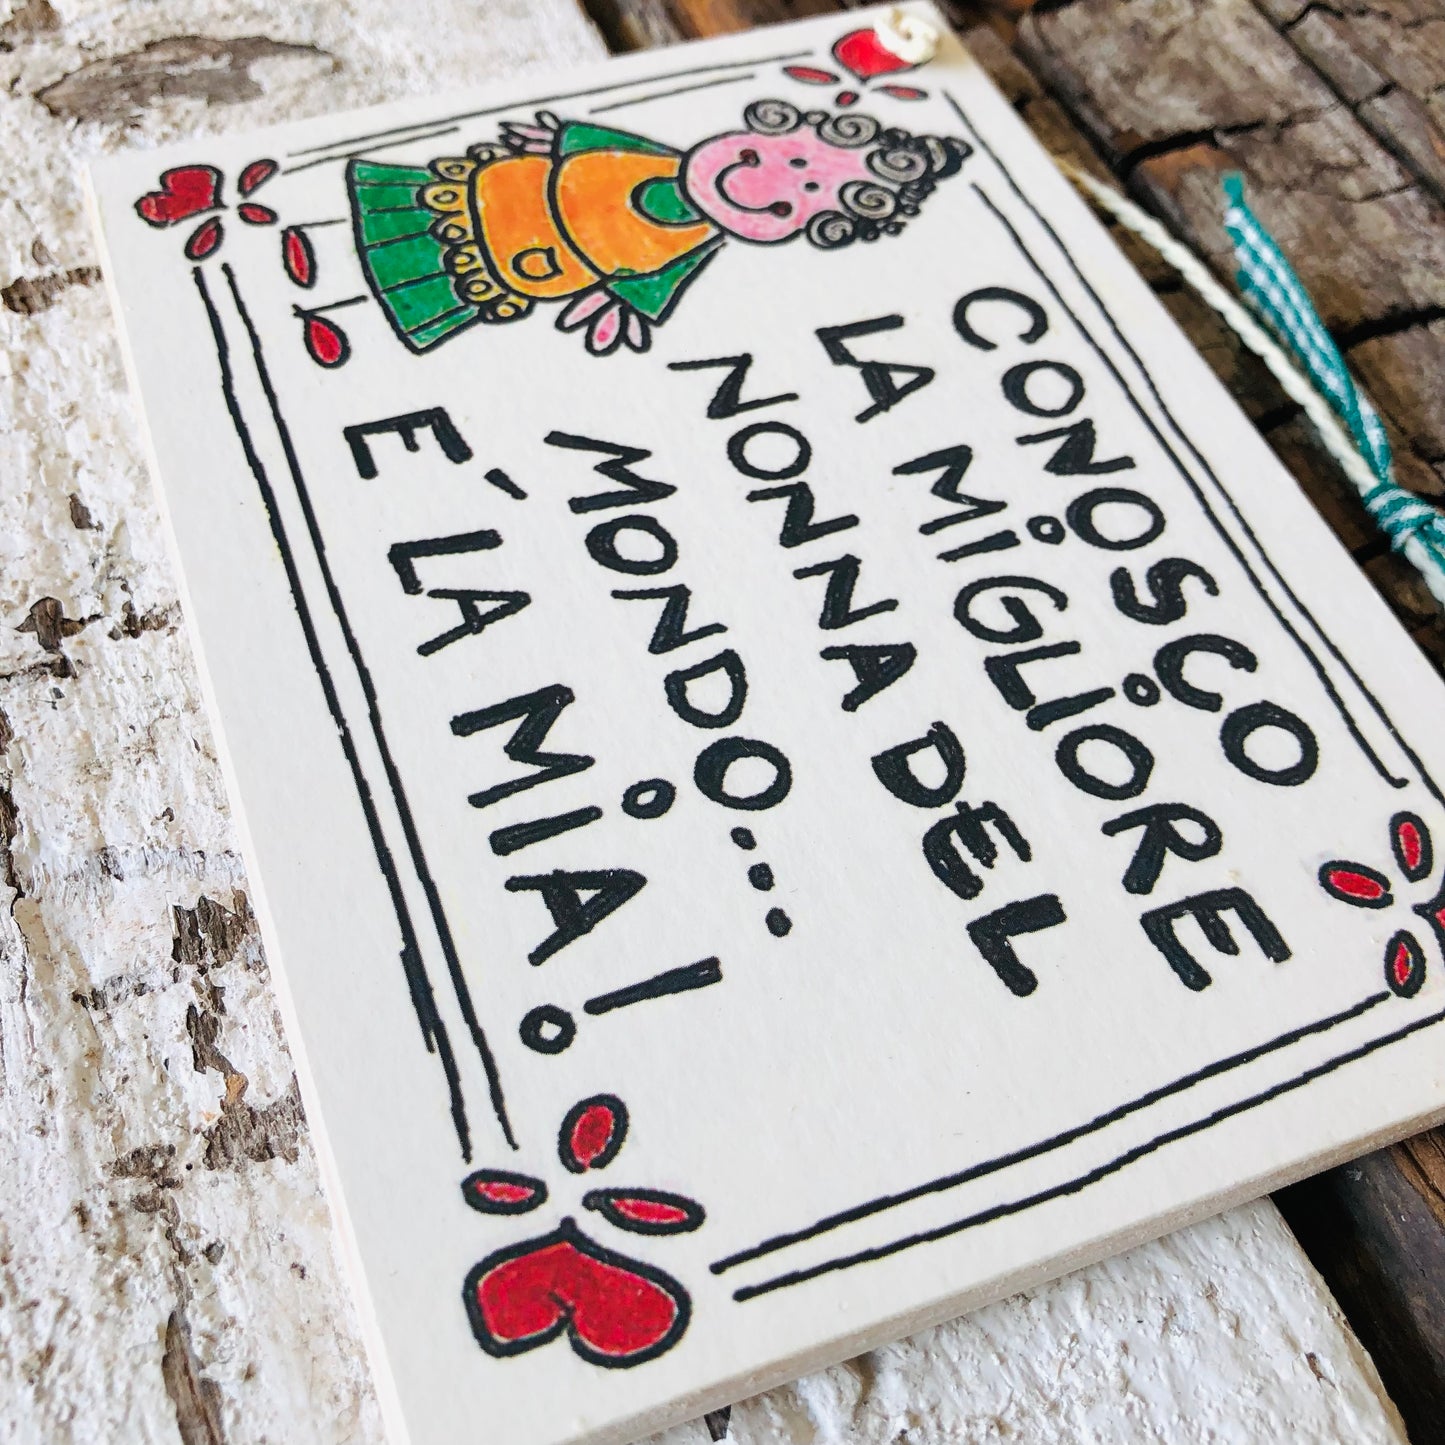 CONOSCO
LA MIGLIORE
NONNA DEL
MONDO...
E' LA MIA!